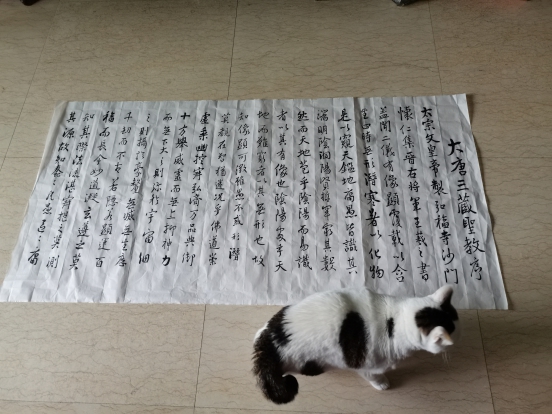 大唐三藏聖教序
太宗文皇帝製弘福寺沙門
懷仁集晉右將軍王羲之書
蓋聞二儀有像顯覆載以含
生四時無形潛寒暑以化物
是以窺天鑑地庸愚皆識其
端明陰洞陽賢哲罕窮其數
然而天地苞乎陰陽而易識
者以其有像也陰陽處乎天
地而難窮者以其無形也故
知像顯可徵雖愚不惑形潛
莫覩在智猶迷況乎佛道崇
虛乘幽控寂弘濟萬品典御
十方舉威靈而無上抑神力
而無下大之則彌於宇宙細
之則攝於毫釐無滅無生歷
千劫而不古若隱若顯運百
福而長今妙道凝玄遵之莫
知其際法流湛寂挹之莫測
其源故知蠢蠢凡愚區區庸